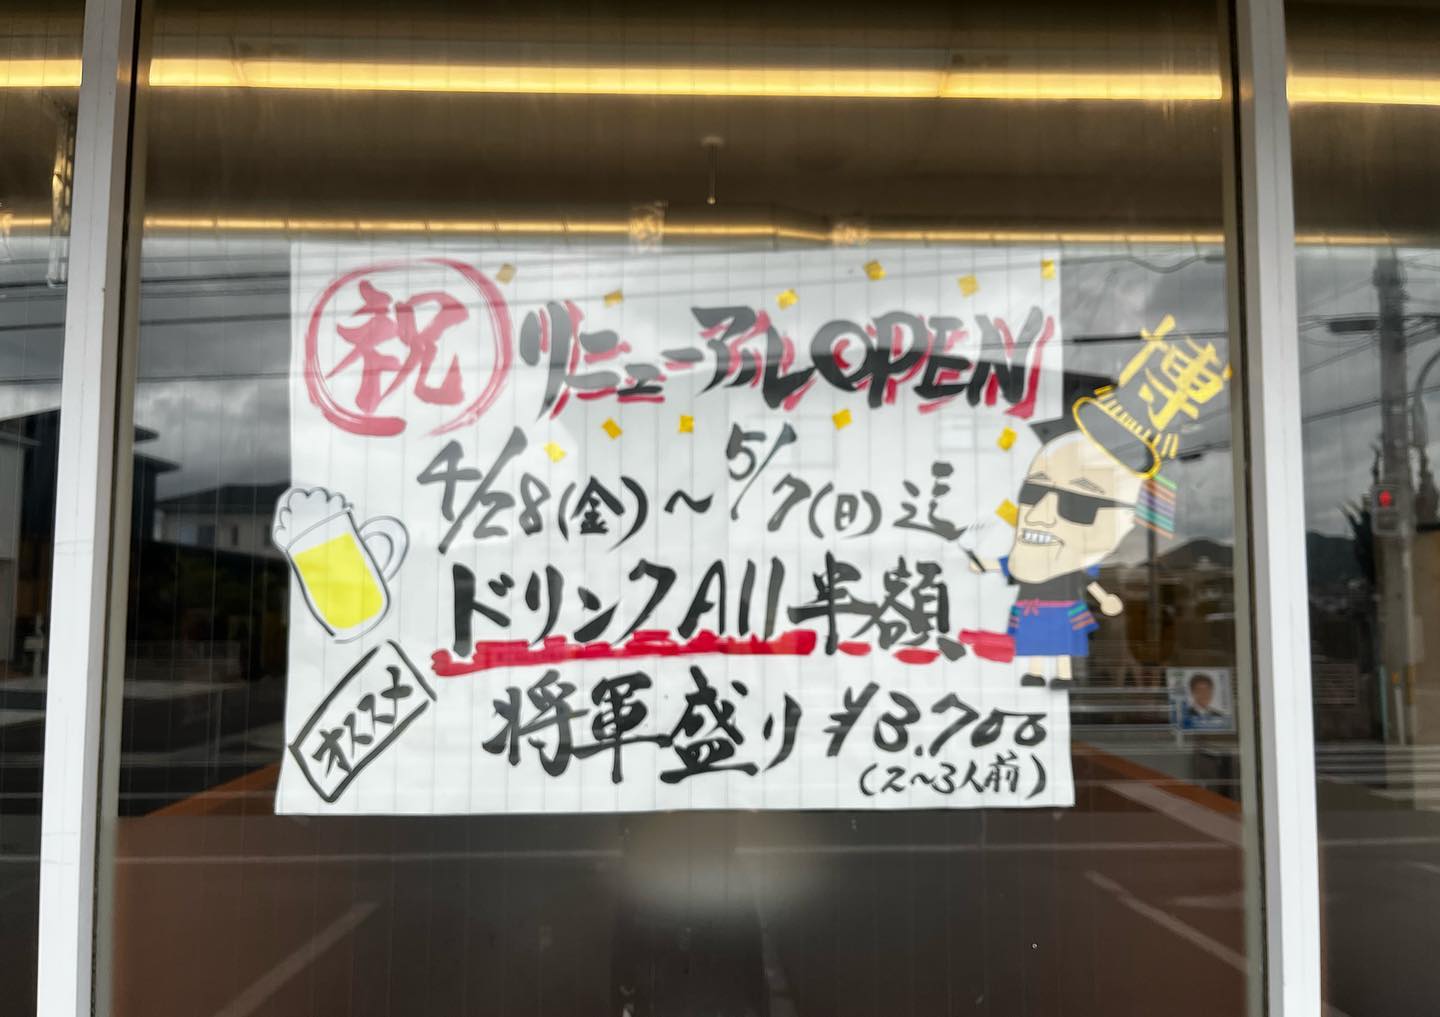 祝 リニューアルOPEN
博
4/28(金)~5/7(日)迄
ドリンクAll半額
オススメ
将軍盛り ¥3,700
(2~3人前)